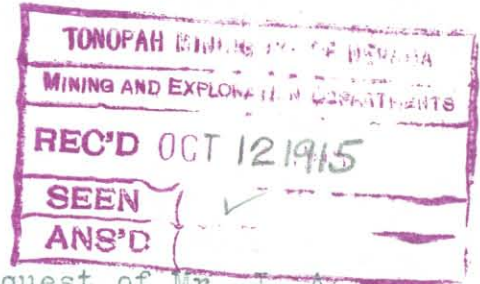 TONOPAH MINING CO. OF NEVADA
MINING AND EXPLORATION DEPARTMENTS
REC'D OCT 12 1915
SEEN ✓
ANS'D
quest of Mr.